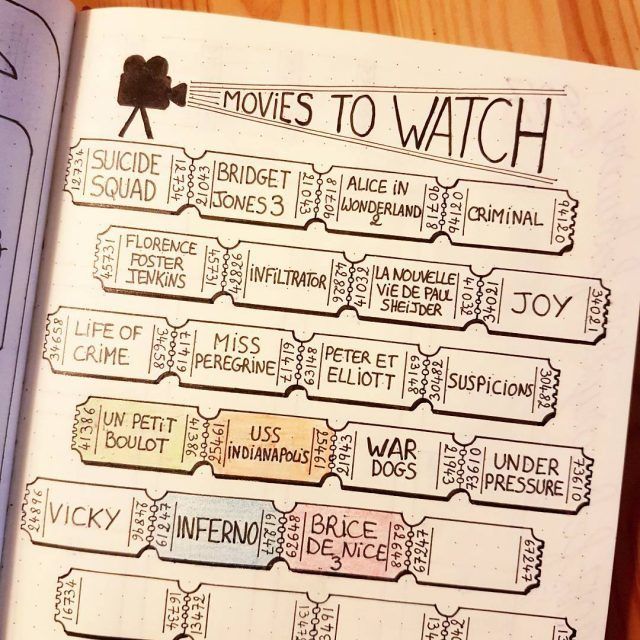 MOVIES TO WATCH
12734 SUICIDE SQUAD 12734 21043 BRIDGET JONES 3 21043 ALICE IN WONDERLAND 2 90718 CRIMINAL 94120
45731 FLORENCE FOSTER JENKINS 45731 62826 INFILTRATOR 62826 LA NOUVELLE VIE DE PAUL SHEIJDER 41032 JOY 34021
34658 LIFE OF CRIME 34658 61417 MISS PEREGRINE 61417 63148 PETER ET ELLIOTT 63148 30482 SUSPICIONS 30482
41386 UN PETIT BOULOT 41386 25461 USS INDIANAPOLIS 25461 21943 WAR DOGS 21943 73610 UNDER PRESSURE 73610
24896 VICKY 24896 61247 INFERNO 61247 62648 BRICE DE NICE 3 62648 67247
16734 16734 13472